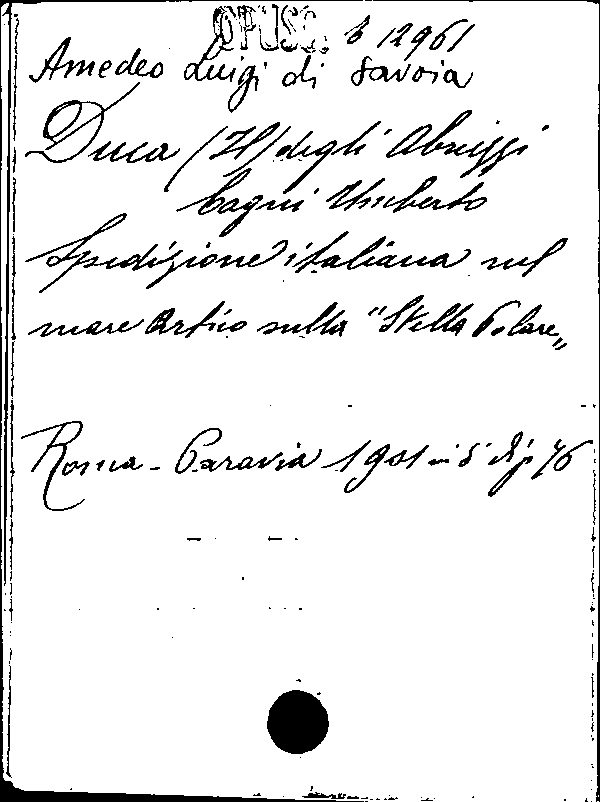 OPUSC. b 12961
Amedeo Luigi di Savoia
Duca (H) degli Abruzzi
Cagni Umberto
Spedizione italiana nel
mare Artico sulla "Stella Polare„
Roma - Paravia 1901 in 8° p 76